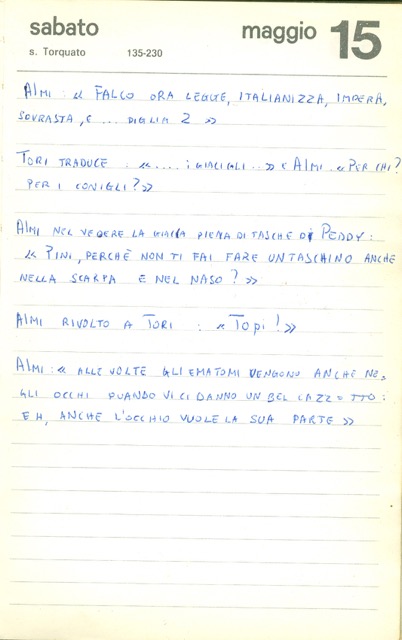 sabato maggio 15
s. Torquato 135-230
ALMI : « FALCO ORA LEGGE, ITALIANIZZA, IMPERA,
SOVRASTA, E ... PIGLIA 2 »
TORI TRADUCE : « .... i GIACIGLI .. » E ALMI « PER CHI?
PER I CONIGLI? »
ALMI NEL VEDERE LA GIACCA PIENA DI TASCHE DI PEDDY :
« PINI, PERCHÈ NON TI FAI FARE UN TASCHINO ANCHE
NELLA SCARPA E NEL NASO? »
ALMI RIVOLTO A TORI : « TOPI! »
ALMI : « ALLE VOLTE GLI EMATOMI VENGONO ANCHE NE-
GLI OCCHI QUANDO VI CI DANNO UN BEL CAZZOTTO :
EH, ANCHE L'OCCHIO VUOLE LA SUA PARTE »